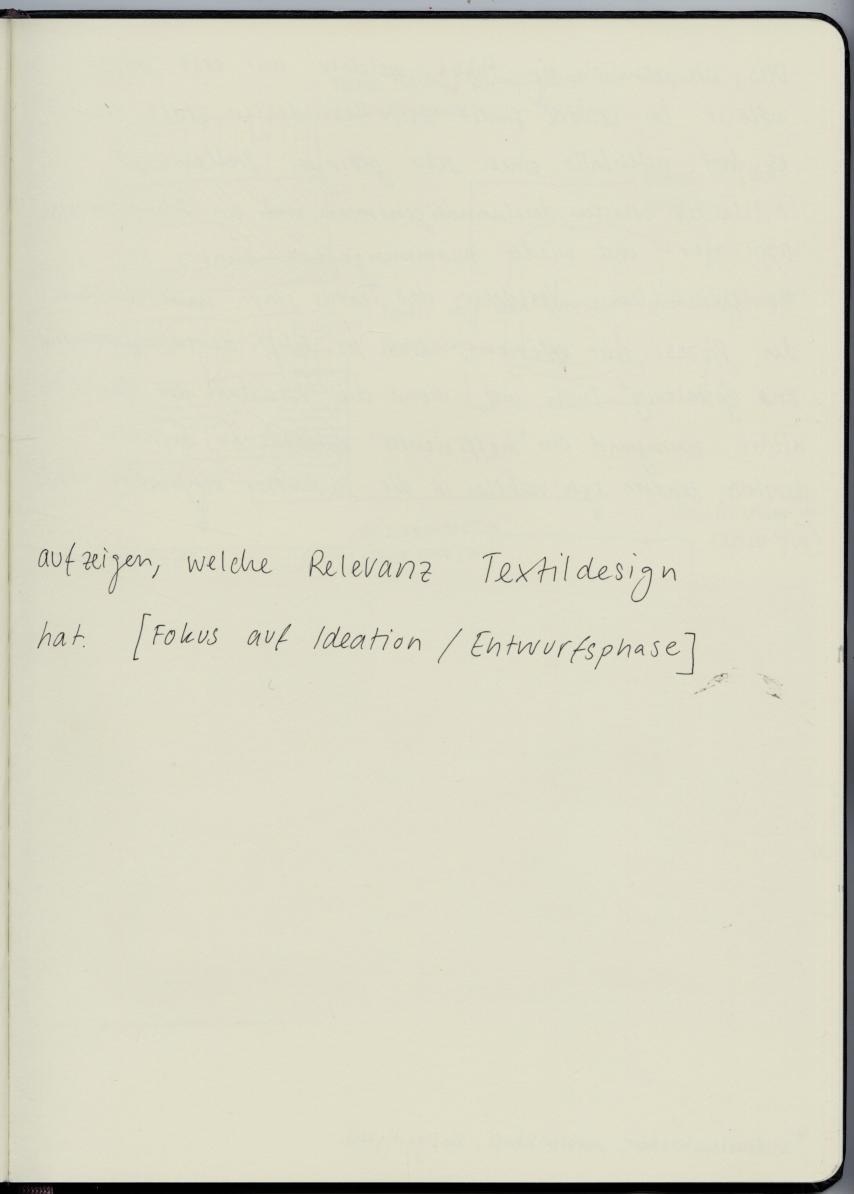 aufzeigen, welche Relevanz Textildesign
hat. [Fokus auf Ideation / Entwurfsphase]